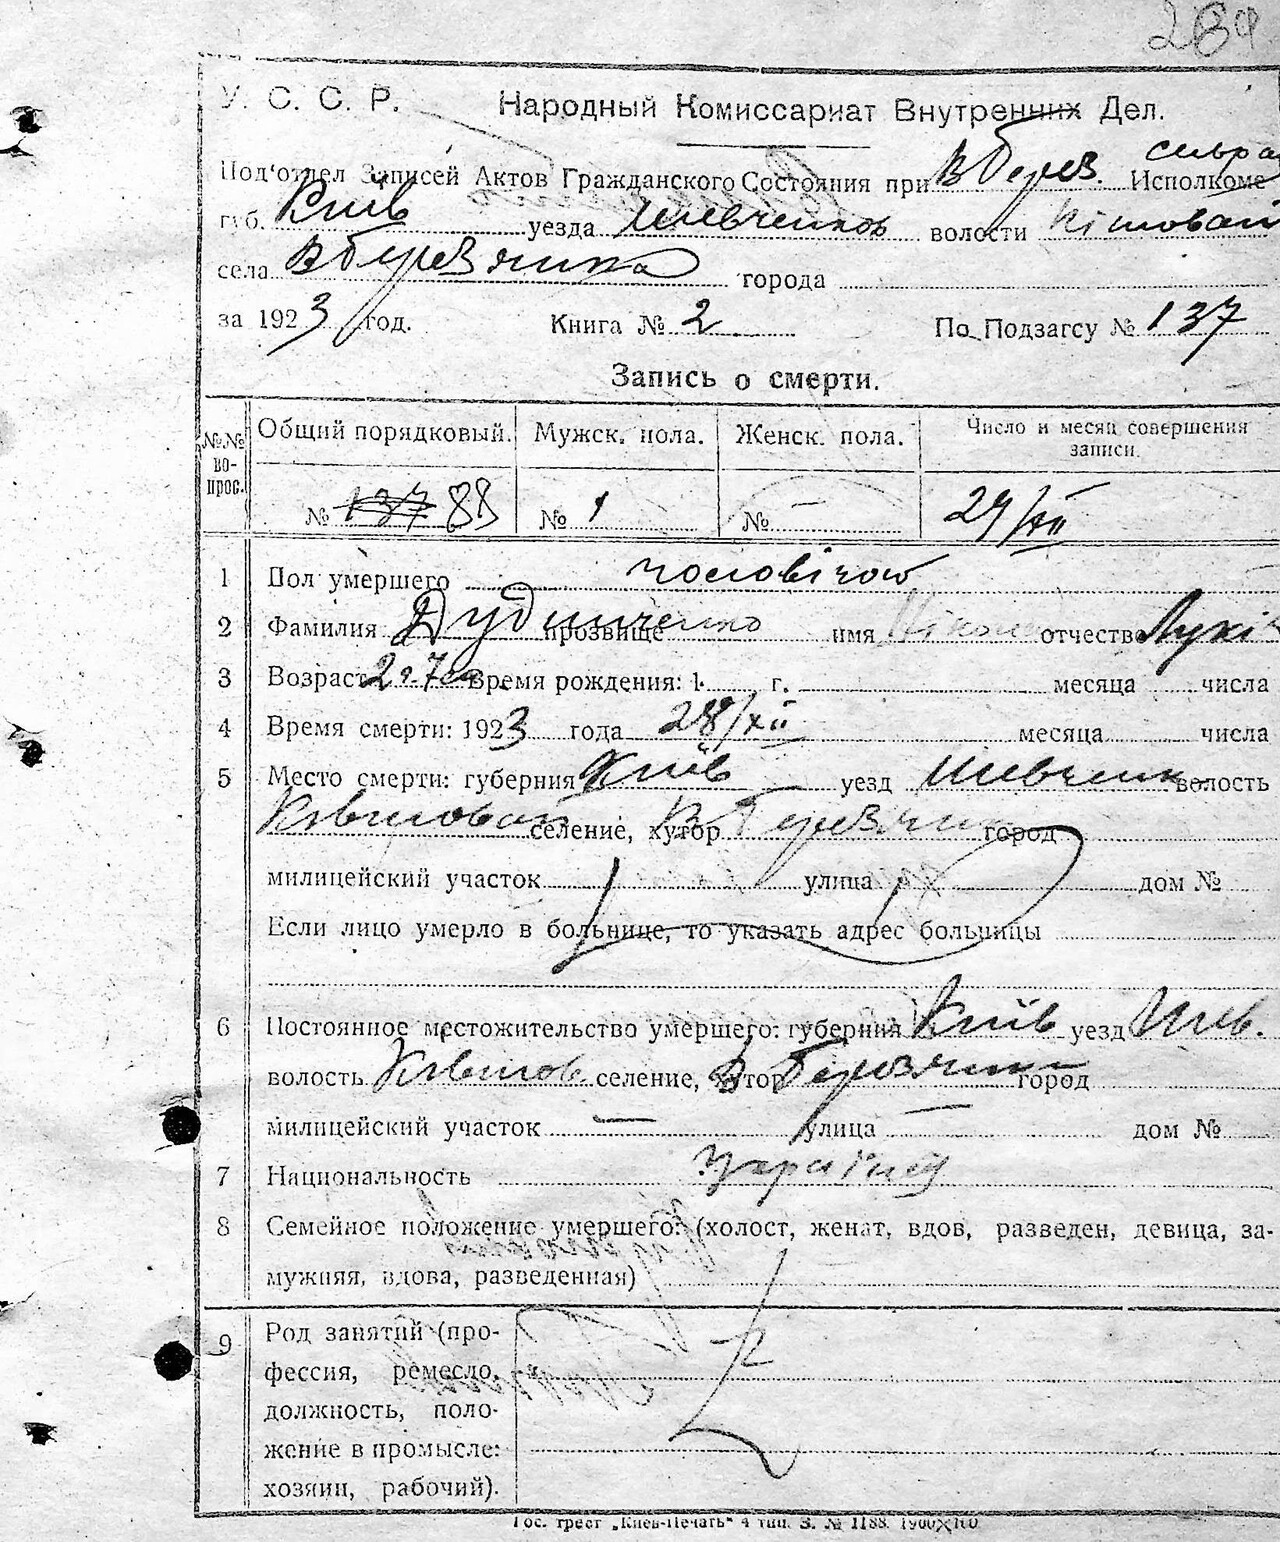 289
У. С. С. Р. Народный Комиссариат Внутренних Дел.
Под'отдел Записей Актов Гражданского Состояния при В Берез. Исполкоме
губ. Київ уезда Шевченков волости
села В Березянка города
за 1923 год. Книга № 2 По Подзагсу № 137
Запись о смерти.
№№ вопрос. Общий порядковый. Мужск. пола. Женск. пола. Число и месяц совершения записи.
№ 137 88 № 1 № — 29/XII
1 Пол умершего чоловічої
2 Фамилия прозвище Дудниченко имя отчество Лукі
3 Возраст Время рождения: 1 г. месяца числа
4 Время смерти: 1923 года 28/XII месяца числа
5 Место смерти: губерния Київ уезд Шевченк волость
селение, хутор В Березянка город
милицейский участок улица дом №
Если лицо умерло в больнице, то указать адрес больницы
6 Постоянное местожительство умершего: губерния Київ уезд Шев.
волость селение, хутор В Березянка город
милицейский участок — улица — дом №
7 Национальность
8 Семейное положение умершего: (холост, женат, вдов, разведен, девица, за-
мужняя, вдова, разведенная)
9 Род занятий (про-
фессия, ремесло,
должность, поло-
жение в промысле:
хозяин, рабочий).
Гос. трест „Киев-Печать" 4 тип. З. № 1188.